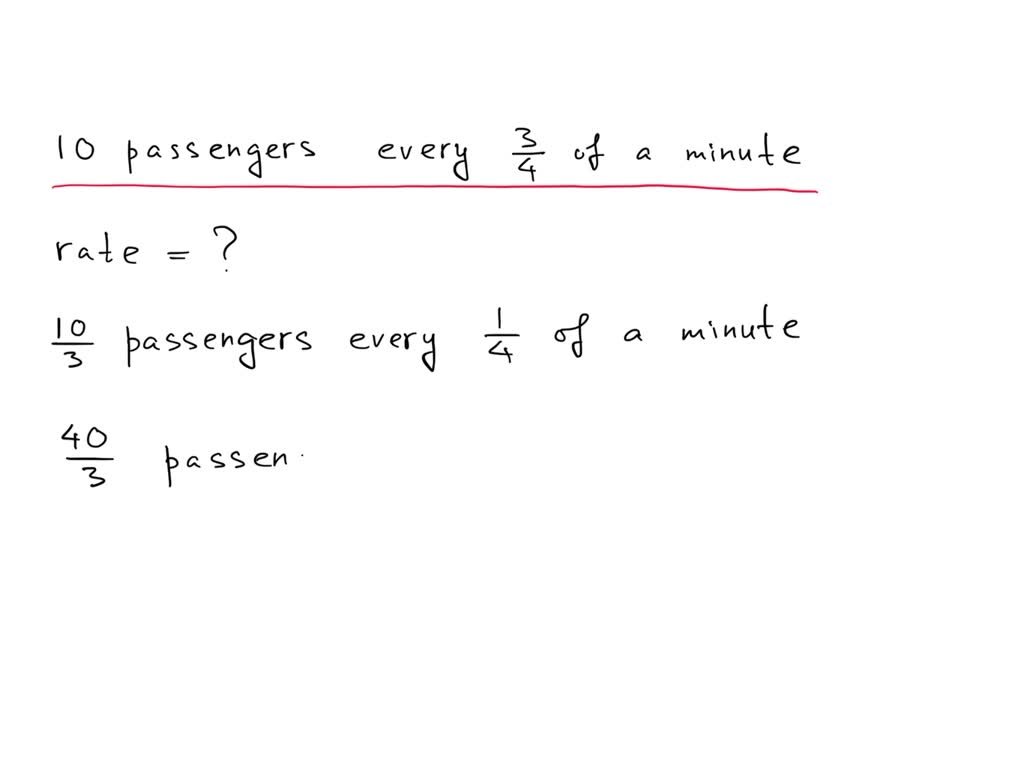 10 passengers every 3/4 of a minute
rate = ?
10/3 passengers every 1/4 of a minute
40/3 passen